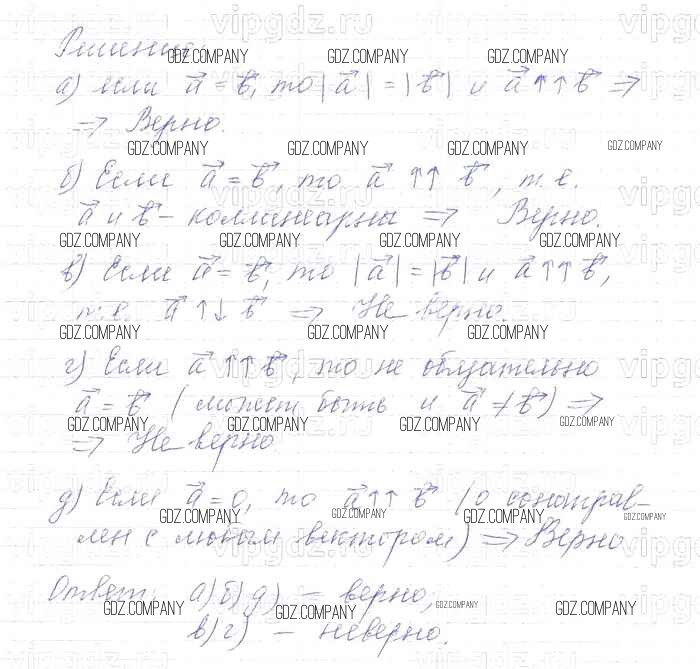 Решение:
а) если a⃗ = b⃗, то |a⃗| = |b⃗| и a⃗ ↑↑ b⃗ ⇒
⇒ Верно.
б) Если a⃗ = b⃗, то a⃗ ↑↑ b⃗, т.е.
a⃗ и b⃗ – коллинеарны ⇒ Верно.
в) Если a⃗ = b⃗, то |a⃗| = |b⃗| и a⃗ ↑↑ b⃗,
т.е. a⃗ ↑↓ b⃗ ⇒ Не верно.
г) Если a⃗ ↑↑ b⃗, то не обязательно
a⃗ = b⃗ (может быть и a⃗ ≠ b⃗) ⇒
⇒ Не верно
д) Если a⃗ = 0, то a⃗ ↑↑ b⃗ (0 сонаправ-
лен с любым вектором) ⇒ Верно
Ответ: а) б) д) – верно;
в) г) – неверно.